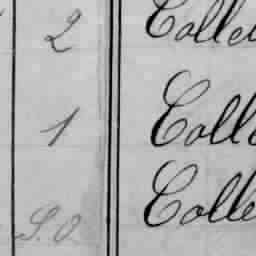 2 Colle
1 Coll
S. O. Colle